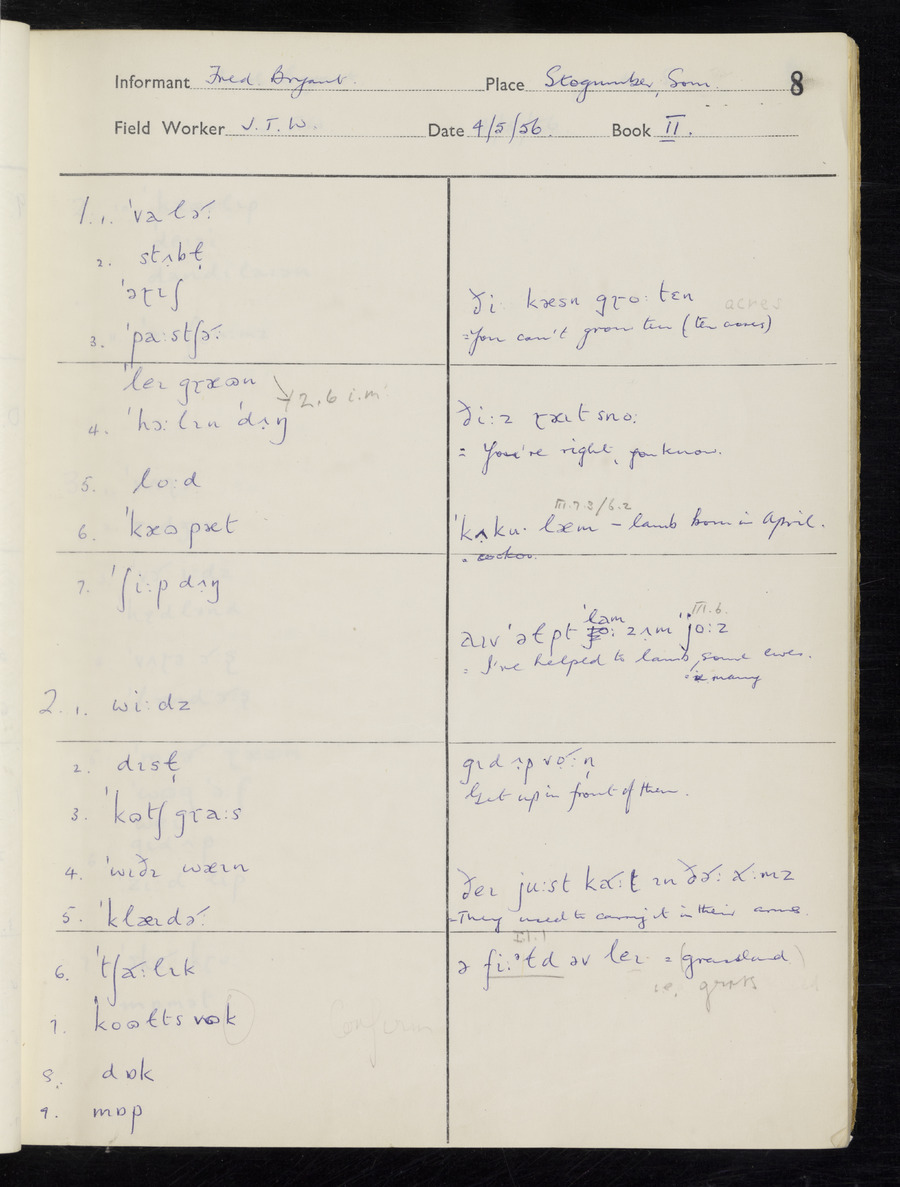 Informant Fred Bryant. Place Stogumber, Som. 8
Field Worker J. T. W. Date 4/5/56. Book II.
1. 1. ˈvalə˞.
2. stʌbɫ̩
ˈəɽɪʃ
3. ˈpa:stʃə˞:
ˈleɪ gɽæʊn
2.6 i.m.
4. ˈhɔ:lɪn ˈdʌŋ
5. lo:d
6. ˈkæʊ pæt
7. ˈʃi:p dʌŋ
2. 1. wi:dz
2. dɪsɫ̩
3. ˈkʊtʃ gɽa:s
4. ˈwɪðɪ wæɪn
5. ˈklæɪdə˞.
6. ˈtʃa˞:lɪk
7. koʊɫts vʊk
Confirm
8. dɒk
9. mɒp
ði: kæsn gɽo: tɛn acres
=You can't grow ten (ten acres)
ði:z ɽæɪt sno:
= You're right, you know.
III.7.3/6.2
ˈkʌku· læm – lamb born in April.
= cuckoo.
III.6.
aɪv ˈəɫpt ˈlam zʌm jo:z
= I've helped to lamb some ewes.
= many
gɪd ʌp və˞:n̩
Get up in front of them.
ðeɪ ju:st ka˞:t ɪn ðə˞: a˞:mz
=They used to carry it in their arms.
II.1.1
ə fi:ᵊɫd əv leɪ = (grassland)
i.e. grass